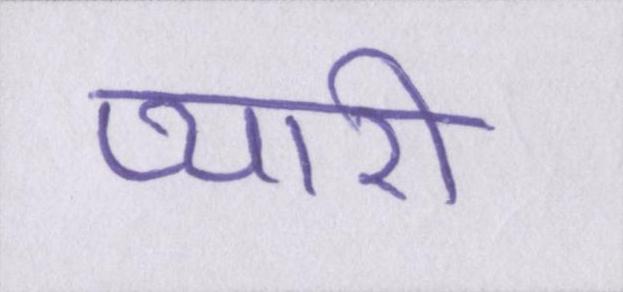 प्यारी